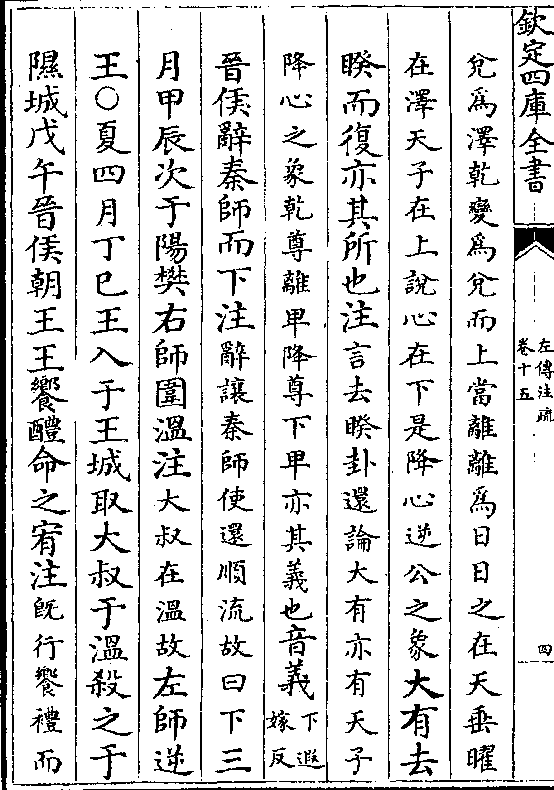 欽定四庫全書
左傳注疏
卷十五
四
兊為澤乾變為兊而上當離離為日日之在天垂曜
在澤天子在上說心在下是降心逆公之象大有去
睽而復亦其所也注言去睽卦還論大有亦有天子
降心之象乾尊離卑降尊下卑亦其義也音義下遐嫁反
晉侯辭秦師而下注辭讓秦師使還順流故曰下三
月甲辰次于陽樊右師圍溫注大叔在溫故左師逆
王○夏四月丁巳王入于王城取大叔于溫殺之于
隰城戊午晉侯朝王王饗醴命之宥注既行饗禮而